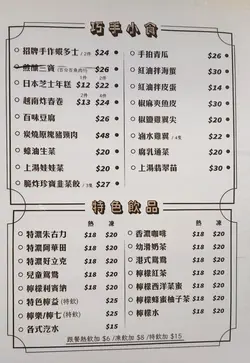 巧手小食
招牌手作蝦多士 /2件 $24
煎釀三寶 $26
日本芝士年糕 2件 $12 4件 $22
越南炸春卷 2件 $13 4件 $24
百味豆腐 $26
炭燒原塊豬頸肉 $48
蠔油生菜 $20
上湯娃娃菜 $20
脆炸珍寶韭菜餃 /5隻 $27
手拍青瓜 $26
紅油拌海蜇 $30
紅油拌皮蛋 $14
椒麻爽魚皮 $30
椒鹽雞翼尖 $20
鹵水雞翼 /4隻 $22
腐乳通菜 $20
上湯翡翠苗 $30
特色飲品
熱 凍
特濃朱古力 $18 $20
特濃阿華田 $18 $20
特濃好立克 $18 $20
兒童鴛鴦 $18 $20
檸檬利賓納 $18 $20
特色檸益 (特飲) $20
檸樂/檸七 (特飲) $20
各式汽水 $15
熱 凍
香濃咖啡 $18 $20
幼滑奶茶 $18 $20
港式鴛鴦 $18 $20
檸檬紅茶 $18 $20
檸檬西洋菜蜜 $18 $20
檸檬蜂蜜柚子茶 $18 $20
檸檬水 $18 $20
跟餐熱飲加 $6/凍飲加 $8/特飲加 $15